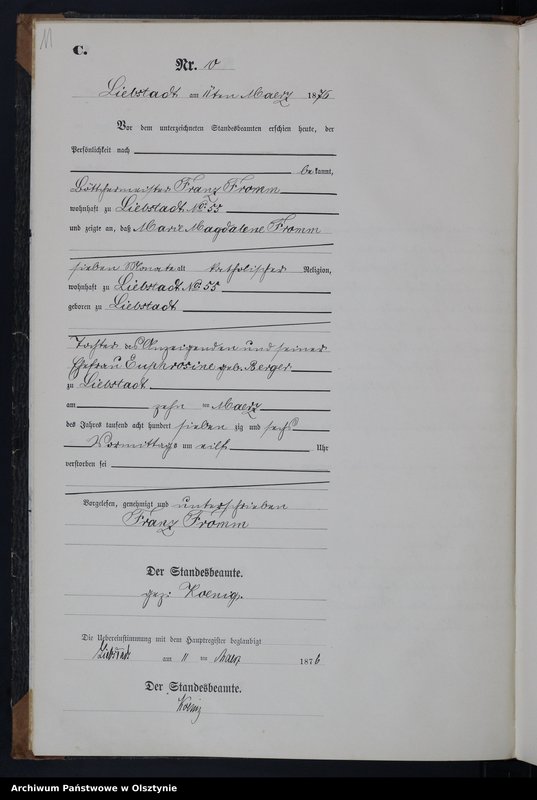 11
C.
Nr.
Liebstadt am 11ten Maerz 1876
Vor dem unterzeichneten Standesbeamten erschien heute, der
Persönlichkeit nach
bekannt,
Böttchermeister Franz Fromm
wohnhaft zu Liebstadt No 55
und zeigte an, daß Marie Magdalene Fromm
sieben Monate alt katholischer Religion,
wohnhaft zu Liebstadt No 55
geboren zu Liebstadt
Tochter des Anzeigenden und seiner
Ehefrau Euphrosine geb. Berger
zu Liebstadt
am zehn ten Maerz
des Jahres tausend acht hundert sieben zig und sechs
Vormittags um eilf Uhr
verstorben sei
Vorgelesen, genehmigt und unterschrieben
Franz Fromm
Der Standesbeamte.
gez: Koenig.
Die Uebereinstimmung mit dem Hauptregister beglaubigt
Liebstadt am 11 ten Maerz 1876
Der Standesbeamte.
Koenig
Archiwum Państwowe w Olsztynie